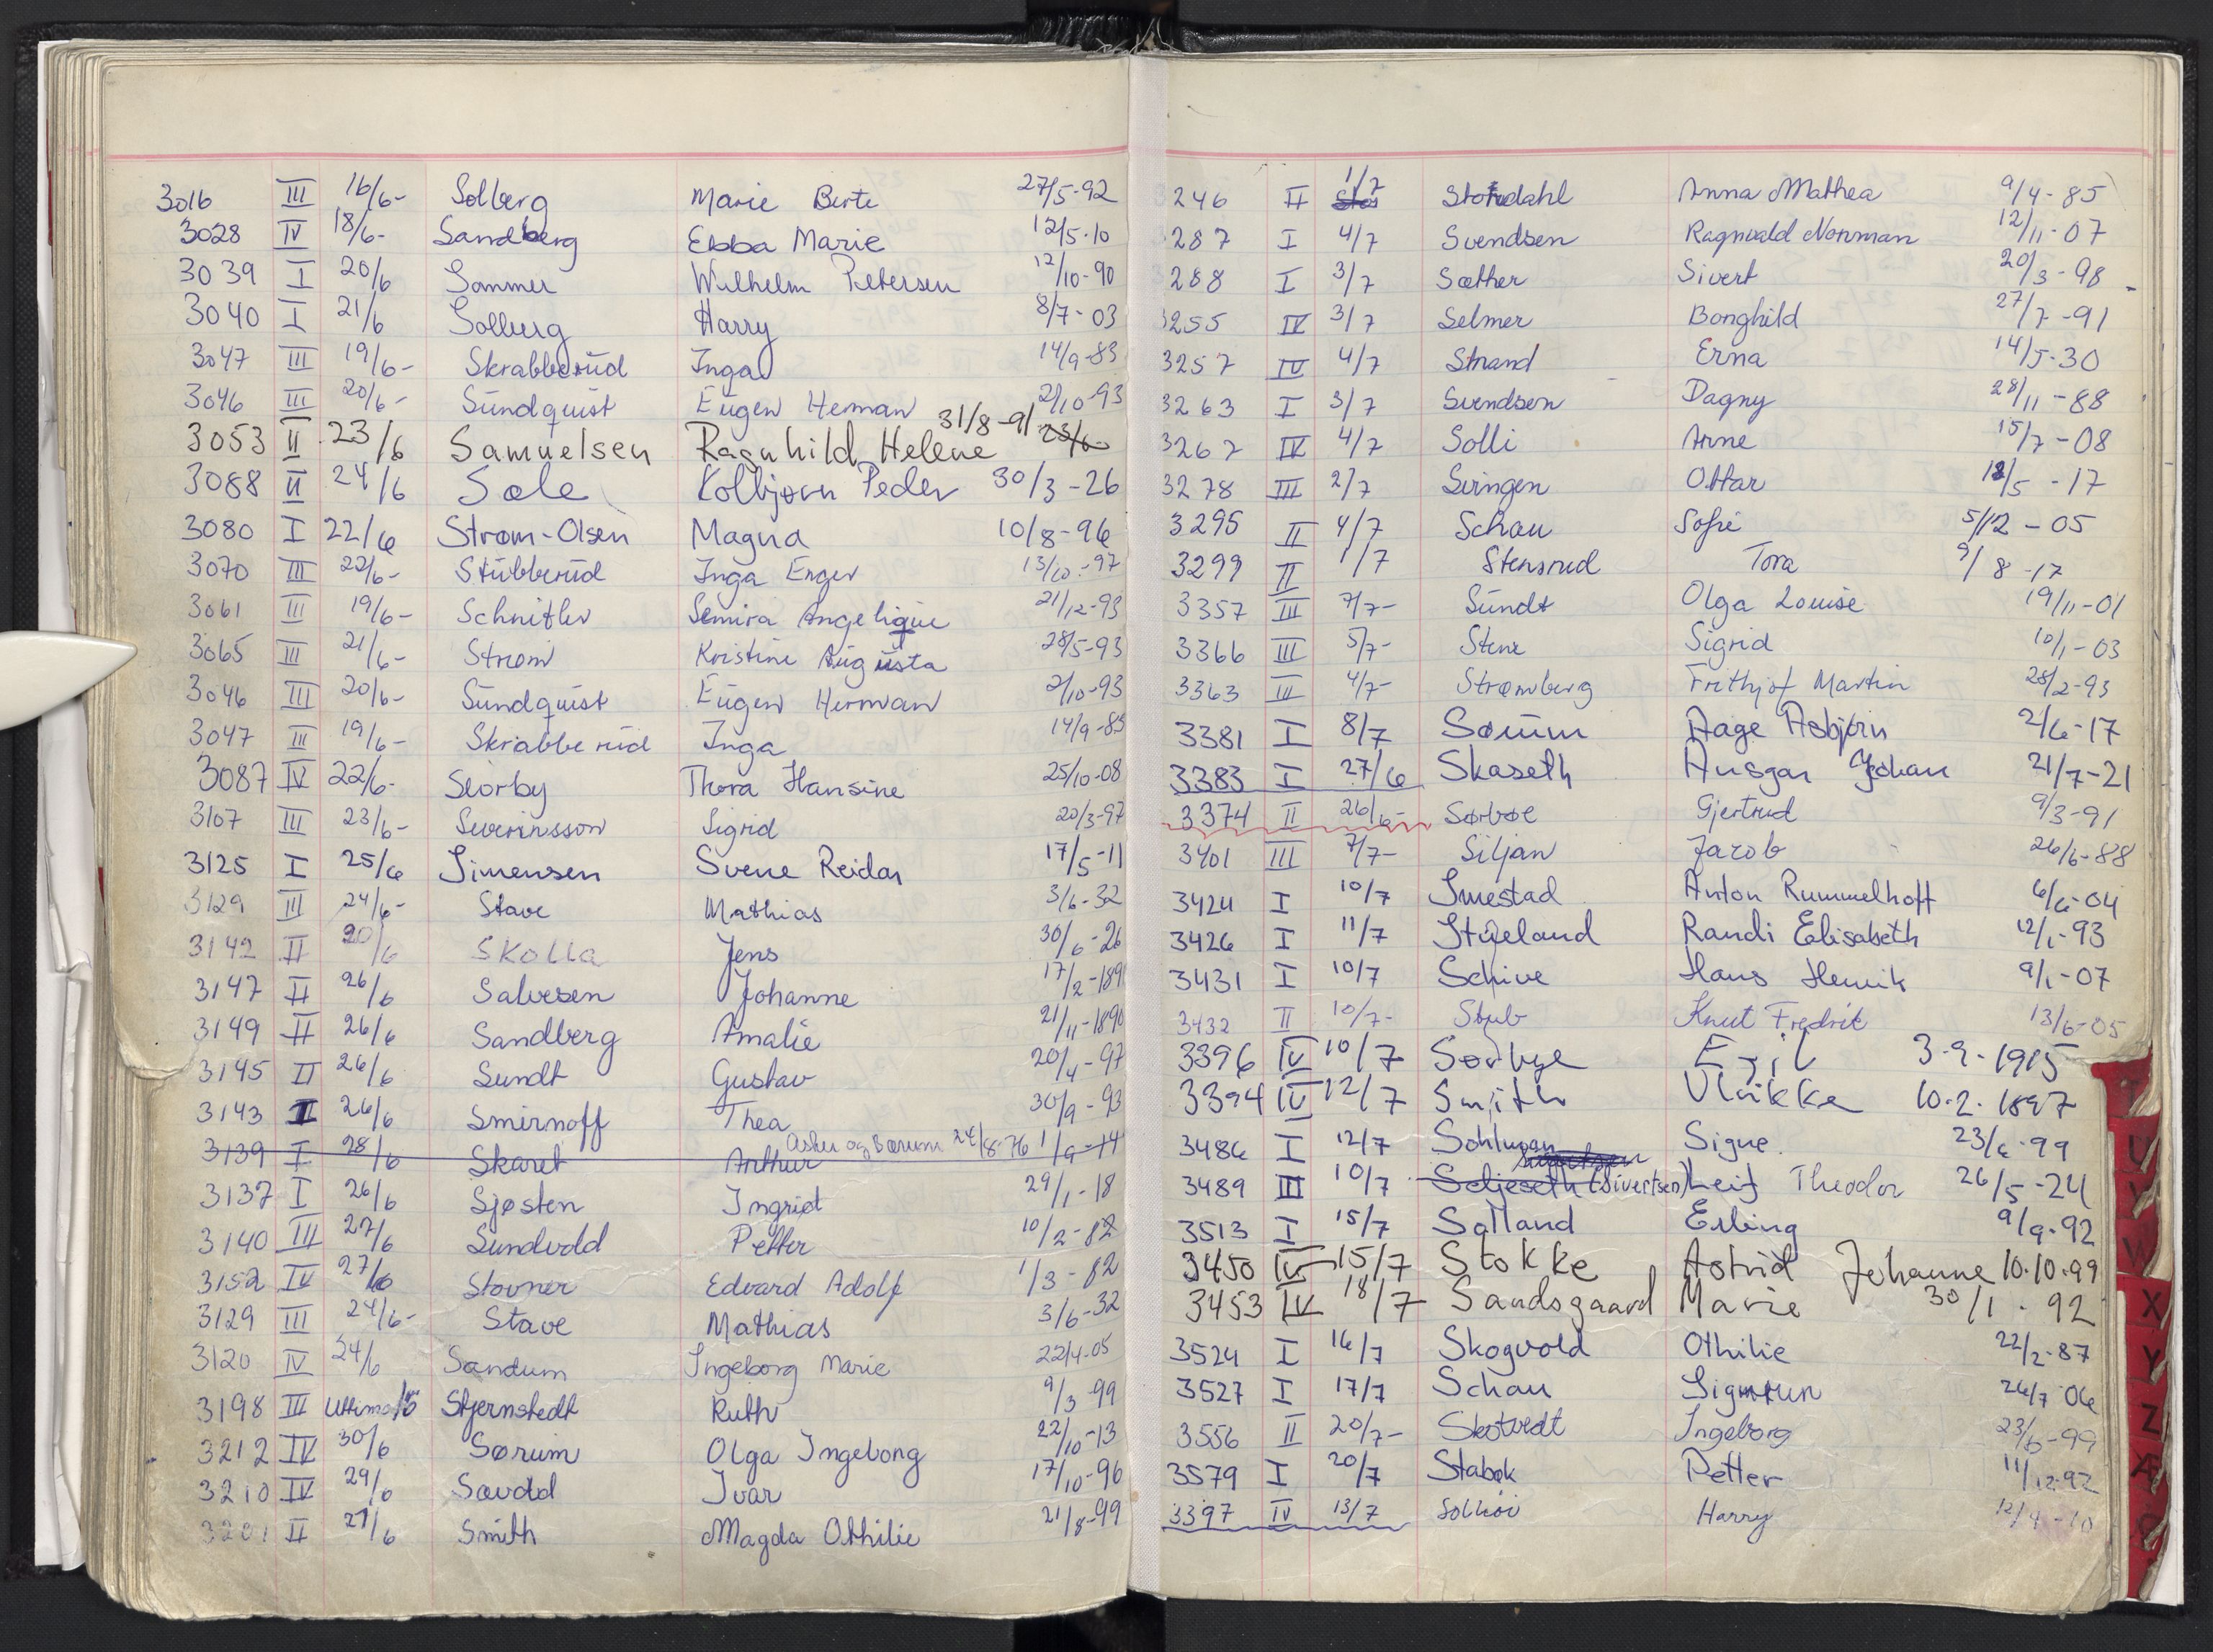 3016 III 16/6- Solberg Marie Berte 27/5-92
3028 IV 18/6- Sandberg Ebba Marie 12/5-10
3039 I 20/6 Sommer Wilhelm Petersen 12/10-90
3040 I 21/6 Solberg Harry 8/7-03
3047 III 19/6- Skrabberud Inga 14/9-83
3046 III 20/6- Sundquist Eugen Herman 2/10-93
3053 II 23/6 Samuelsen Ragnhild Helene 31/8-91
3088 II 24/6 Sole Kolbjørn Peder 30/3-26
3080 I 22/6 Strøm-Olsen Magna 10/8-96
3070 III 22/6- Stubberud Inga Enger 13/10-97
3061 III 19/6- Schnitler Semira Angelique 21/12-93
3065 III 21/6- Strøm Kristine Augusta 28/5-93
3046 III 20/6- Sundquist Eugen Herman 2/10-93
3047 III 19/6- Skrabberud Inga 14/9-83
3087 IV 22/6- Storby Thora Hansine 25/10-08
3107 III 23/6- Severinsson Sigrid 20/3-97
3125 I 25/6 Simensen Svene Reidar 17/5-11
3129 III 24/6- Stave Mathias 3/6-32
3142 II 20/6 Skolla Jens 30/6-26
3147 II 26/6 Salvesen Johanne 17/2-189
3149 II 26/6 Sandberg Amalie 21/11-1890
3145 II 26/6 Sundt Gustav 20/4-97
3143 II 26/6 Smirnoff Thea 30/9-93
3139 I 28/6 Skaret Arthur Asker og Bærum 24/8-76 1/9-14
3137 I 26/6 Sjøsten Ingrid 29/1-18
3140 III 27/6 Sundvold Petter 10/2-82
3152 IV 27/6 Stovner Edvard Adolf 1/3-82
3129 III 24/6- Stave Mathias 3/6-32
3120 IV 24/6 Sandum Ingeborg Marie 22/4-05
3198 III Stjernstedt Ruth 9/3-99
3212 IV 30/6 Sørum Olga Ingeborg 22/10-13
3210 IV 29/6 Ivar 17/10-96
3201 II 27/6 Smith Magda Othilie 21/8-99
246 II 1/7 Stordahl Anna Mathea 9/4-85
287 I 4/7 Svendsen Ragnvald Norman 12/11-07
288 I 3/7 Sæther Sivert 20/3-98
3255 IV 3/7 Selmer Borghild 27/7-91
3257 IV 4/7 Strand Erna 14/5-30
3263 I 3/7 Svendsen Dagny 28/11-88
3267 IV 4/7 Solli Arne 15/7-08
3278 III 2/7 Svingen Ottar 12/5-17
3295 II 4/7 Schau Sofie 5/12-05
3299 II 1/7 Stensrud Tora 9/8-17
3357 III 7/7- Sundt Olga Louise 19/11-01
3366 III 5/7- Stene Sigrid 10/1-03
3363 III 4/7- Strømberg Frithjof Martin 28/2-93
3381 I 8/7 Sørum Aage Asbjørn 2/6-17
3383 I 27/6 Skaseth Ansgar Johan 21/7-21
3374 II 26/6- Sørbøe Gjertrud 9/3-91
3401 III 7/7- Siljan Jacob 26/6-88
3424 I 10/7 Smestad Anton Rummelhoff 6/6-04
3426 I 11/7 Støeland Randi Elisabeth 12/1-93
3431 I 10/7 Schive Hans Henrik 9/1-07
3432 II 10/7- Stub Knut Fredrik 13/6-05
3396 IV 10/7 Sørbye Egil 3.9.1915
3394 IV 12/7 Smith Ulrikke 10.2.1897
3486 I 12/7 Sohlman Signe 23/6-99
3489 III 10/7 Seljeseth (Sivertsen) Leif Theodor 26/5-24
3513 I 15/7 Solland Erling 9/9-92
3450 IV 15/7 Stokke Astrid Johanne 10.10.99
3453 IV 18/7 Sandsgaard Marie 30/1.92
3524 I 16/7 Skogvold Othilie 22/2-87
3527 I 17/7 Schau Sigrun 26/7 06
3556 II 20/7- Skotvedt Ingeborg 23/6-99
3579 I 20/7 Stabæk Petter 11/12-92
3397 IV 13/7 Harry 12/4-10
U
V
W
X
Y
Z
Æ